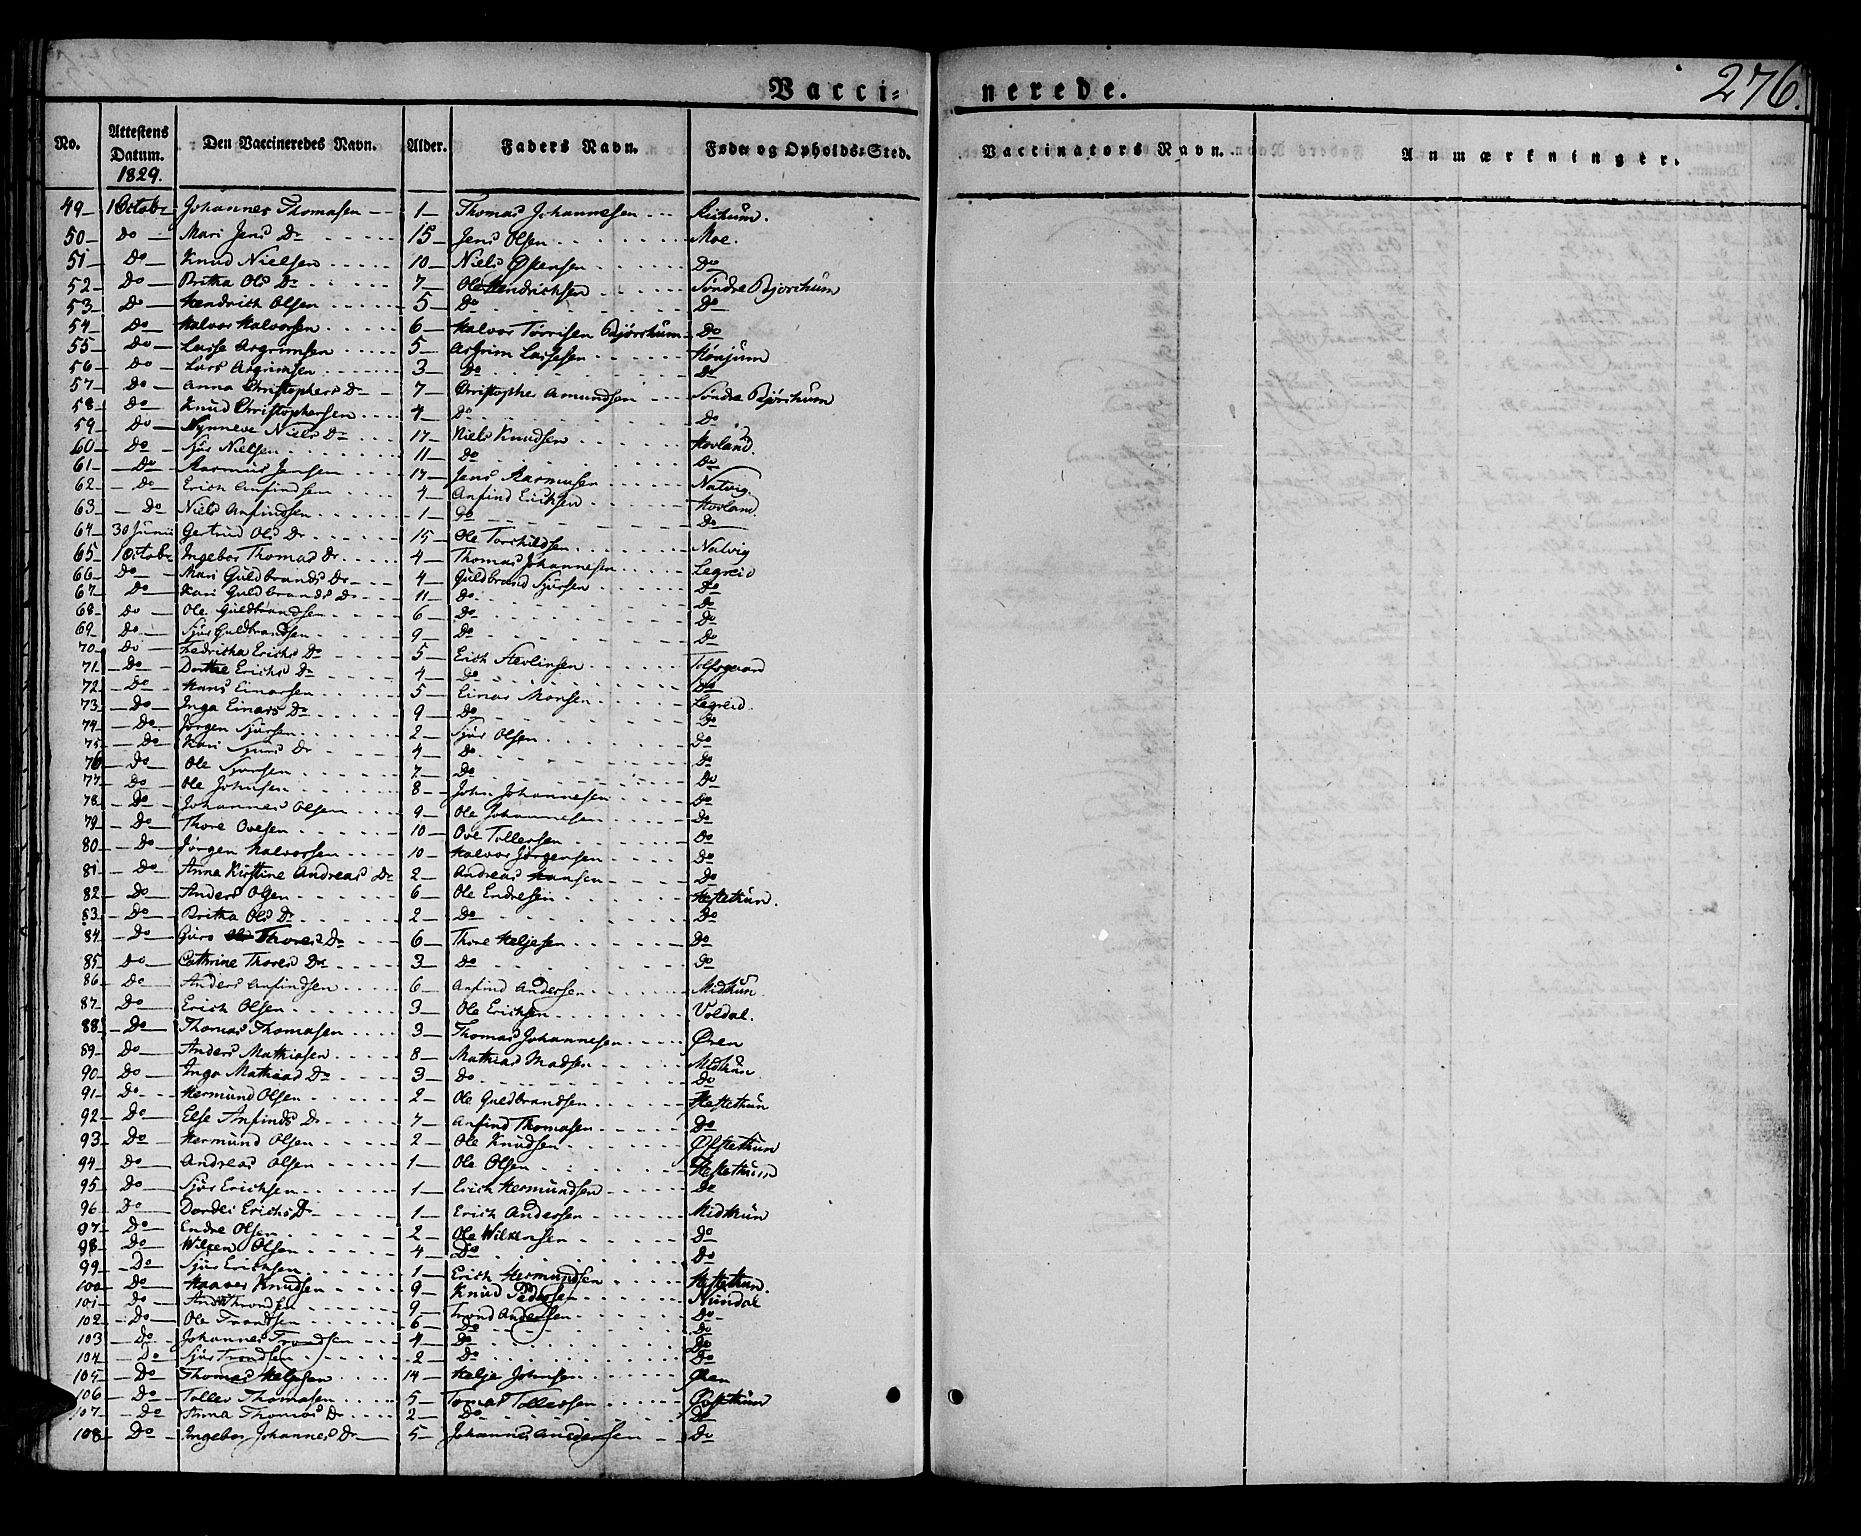 276.
Vacci-nerede.
No. Attestens Datum. 1829. Den Vaccineredes Navn. Alder. Faders Navn. Føde og Opholds-Sted. Vaccinators Navn. Anmærkninger.
49 1 Octobr Johannes Thomasen 1 Thomas Johannesen
50 Do Mari Jens Dr 15 Jens Olsen Moe.
51 Do Knud Nielsen 10 Niels Do
52 Do Britha Ols Dr 7 Ole Hendrichsen Søndre Bjørchum
53 Do Hendrich Olsen 5 Do Do
54 Do Halvor Halvorsen 6 Halvor Torrisen Bjørchum Do
55 Do Lasse Asgrimsen 5 Asgrim Lassesen Hønjum
56 Do Lars Asgrimsen 3 Do Do
57 Do Anna Christophers Dr 7 Christopher Amundsen Søndre Bjørchum
58 Do Knud Christophersen 4 Do Do
59 Do Synneve Niels Dr 17 Niels Knudsen Hovland.
60 Do Sjur Nielsen 11 Do Do
61 Do Rasmus Jensen 17 Jens Rasmusen Natvig.
62 Do Erich Anfindsen 4 Anfind Erichsen Hovland
63 Do Niels Anfindsen 1 Do Do
64 30 Junii Gertrud Ols Dr 15 Ole Torchildsen Natvig
65 1 Octobr Ingebor Thomas Dr 4 Thomas Johannesen Legreid
66 Do Mari Guldbrands Dr 4 Guldbrand Sjursen Do
67 Do Kari Guldbrands Dr 11 Do Do
68 Do Ole Guldbrandsen 6 Do Do
69 Do Sjur Guldbrandsen 9 Do Do
70 Do Fredricha Erichs Dr 5 Erich
71 Do Dorthe Erichs Dr 4 Do Do
72 Do Hans Einarsen 5 Einar Monsen Legreid.
73 Do Inga Einars Dr 9 Do Do
74 Do Jørgen Sjursen 2 Sjur Olsen Do
75 Do Kari Sjurs Dr 4 Do Do
76 Do Ole Sjursen 7 Do Do
77 Do Ole Johnsen 8 John Johannesen Do
78 Do Johannes Olsen 9 Ole Johannesen Do
79 Do Thore Ovesen 10 Ove Tollevsen Do
80 Do Jørgen Halvorsen 10 Halvor Jørgensen Do
81 Do Anna Kirstine Andreas Dr 2 Andreas Hansen Do
82 Do Anders Olsen 6 Ole Endresen Hestethun.
83 Do Britha Ols Dr 2 Do Do
84 Do Guro Thores Dr 6 Thore Heljesen Do
85 Do Cathrine Thores Dr 3 Do Do
86 Do Anders Anfindsen 6 Anfind Andersen Midthun.
87 Do Erich Olsen 3 Ole Erichsen Voldal.
88 Do Thomas Thomasen 3 Thomas Johannesen Øren
89 Do Anders Mathiasen 8 Mathias Madsen Midthun
90 Do Inga Mathias Dr 3 Do Do
91 Do Hermund Olsen 2 Ole Guldbrandsen Hestethun
92 Do Else Anfinds Dr 7 Anfind Thomasen Do
93 Do Hermund Olsen 2 Ole Knudsen Øfstethun
94 Do Andreas Olsen 1 Ole Olsen Hestethun
95 Do Sjur Erichsen 1 Erich Hermundsen Do
96 Do Dordei Erichs Dr 1 Erich Andersen Midthun
97 Do Endre Olsen 2 Ole Wilkensen Do
98 Do Wilken Olsen 4 Do Do
99 Do Sjur Erichsen 1 Erich Hermundsen Hestethun.
100 Do Haaver Knudsen 9 Knud Pedersen Nundal
101 Do 9 Trond Andersen Do
102 Do Ole Trondsen 6 Do Do
103 Do Johannes Trondsen 4 Do Do
104 Do Sjur Trondsen 2 Do Do
105 Do Thomas Heljesen 14 Helje Johnsen Øren
106 Do Tollev Thomasen 5 Tomas Tollevsen Øvstethun
107 Do Anna Thomas Dr 2 Do Do
108 Do Ingebor Johannes Dr 5 Johannes Andersen Do